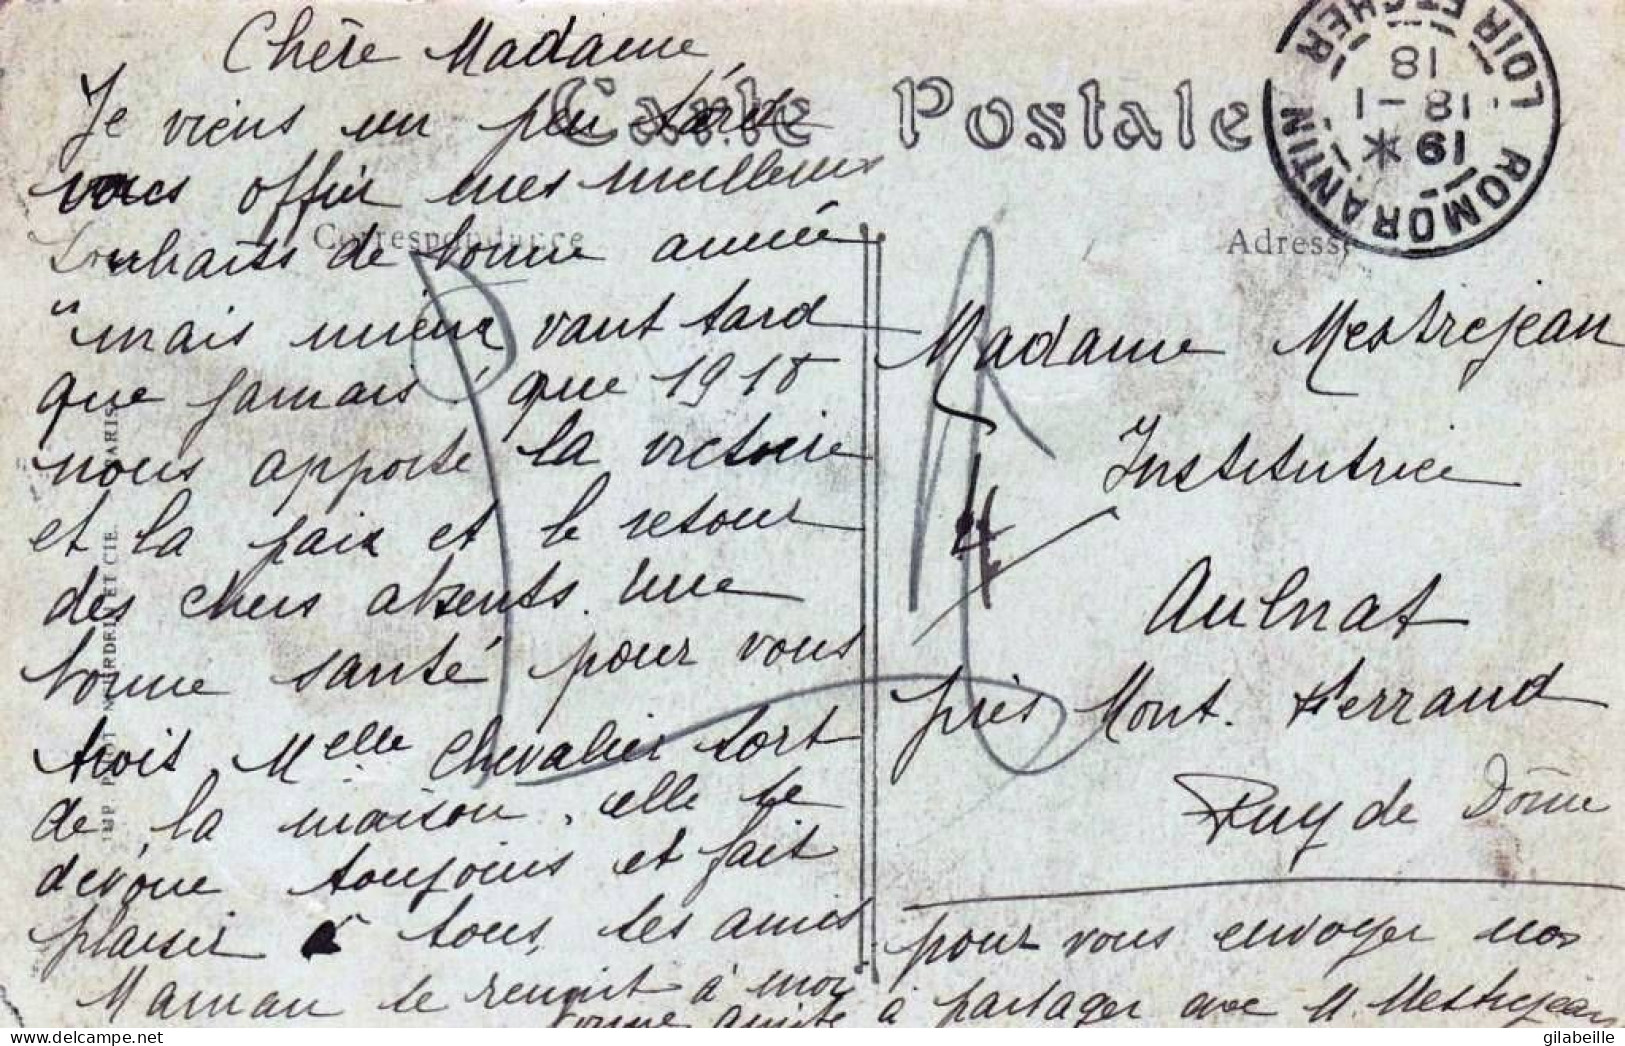 Chère Madame,
Je viens un peu tard
vous offrir mes meilleurs
souhaits de bonne année
"mais mieux vaut tard
que jamais" que 1918
nous apporte la victoire
et la paix et le retour
des chers absents. Une
bonne santé pour vous
trois Melle Chevalier sort
de la maison. elle se
dévoue toujours et fait
plaisir à tous ses amis
Maman se réunit à moi
pour vous envoyer nos
bonne amitié à partager avec M. Mestrejean
Carte Postale
Correspondance
Adresse
Madame Mestrejean
Institutrice
Aulnat
près Mont. Ferrand
Puy de Dôme
ROMORANTIN
LOIR ET CHER
19 *
18 - 1
18
ET CIE. PARIS
IMP.
gilabeille